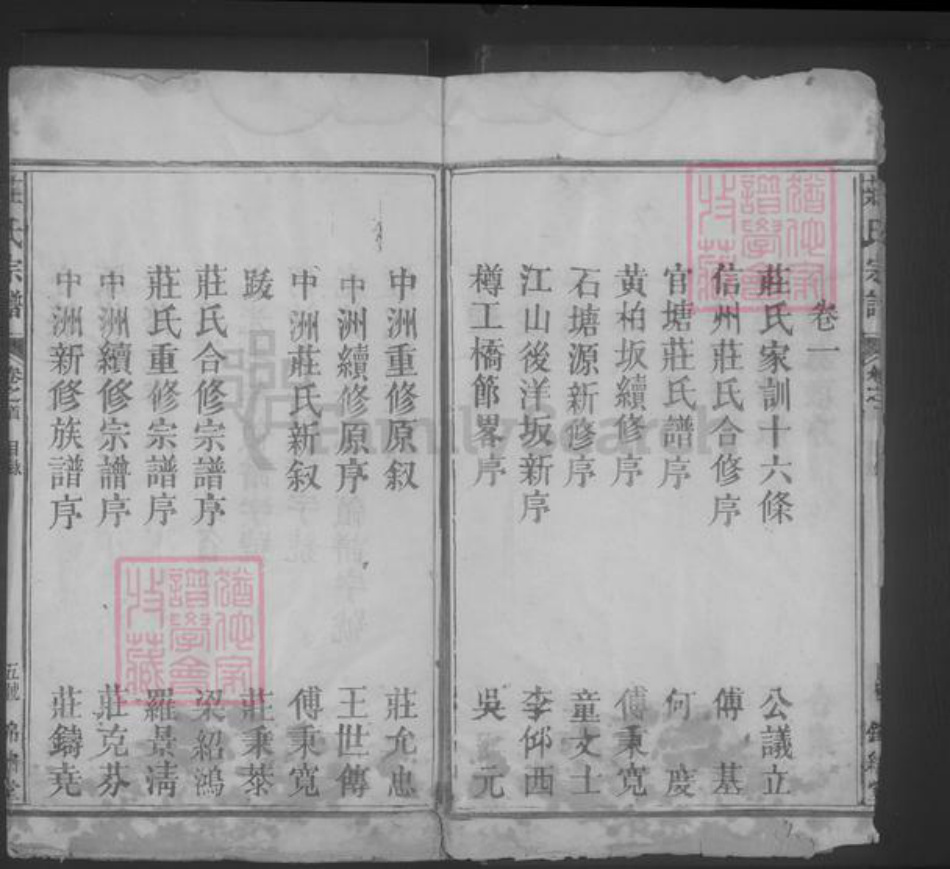 卷一
莊氏家訓十六條 公議立
信州莊氏合修序 傅基
官塘莊氏譜序 何度
黃柏坂續修序 傅秉寬
石塘源新修序 童文士
江山後洋坂新序 李邨西
樽工橋節畧序 吳元
中洲重修原叙 莊允忠
中洲續修原序 王世傳
中洲莊氏新叙 傅秉寬
跋 莊秉棻
莊氏合修宗譜序 梁紹鴻
莊氏重修宗譜序 羅景清
中洲續修宗譜序 莊克芬
中洲新修族譜序 莊鑄堯
莊氏宗譜
卷之首 目錄
五號